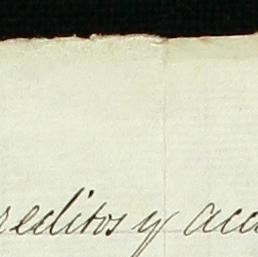 reditos y acc